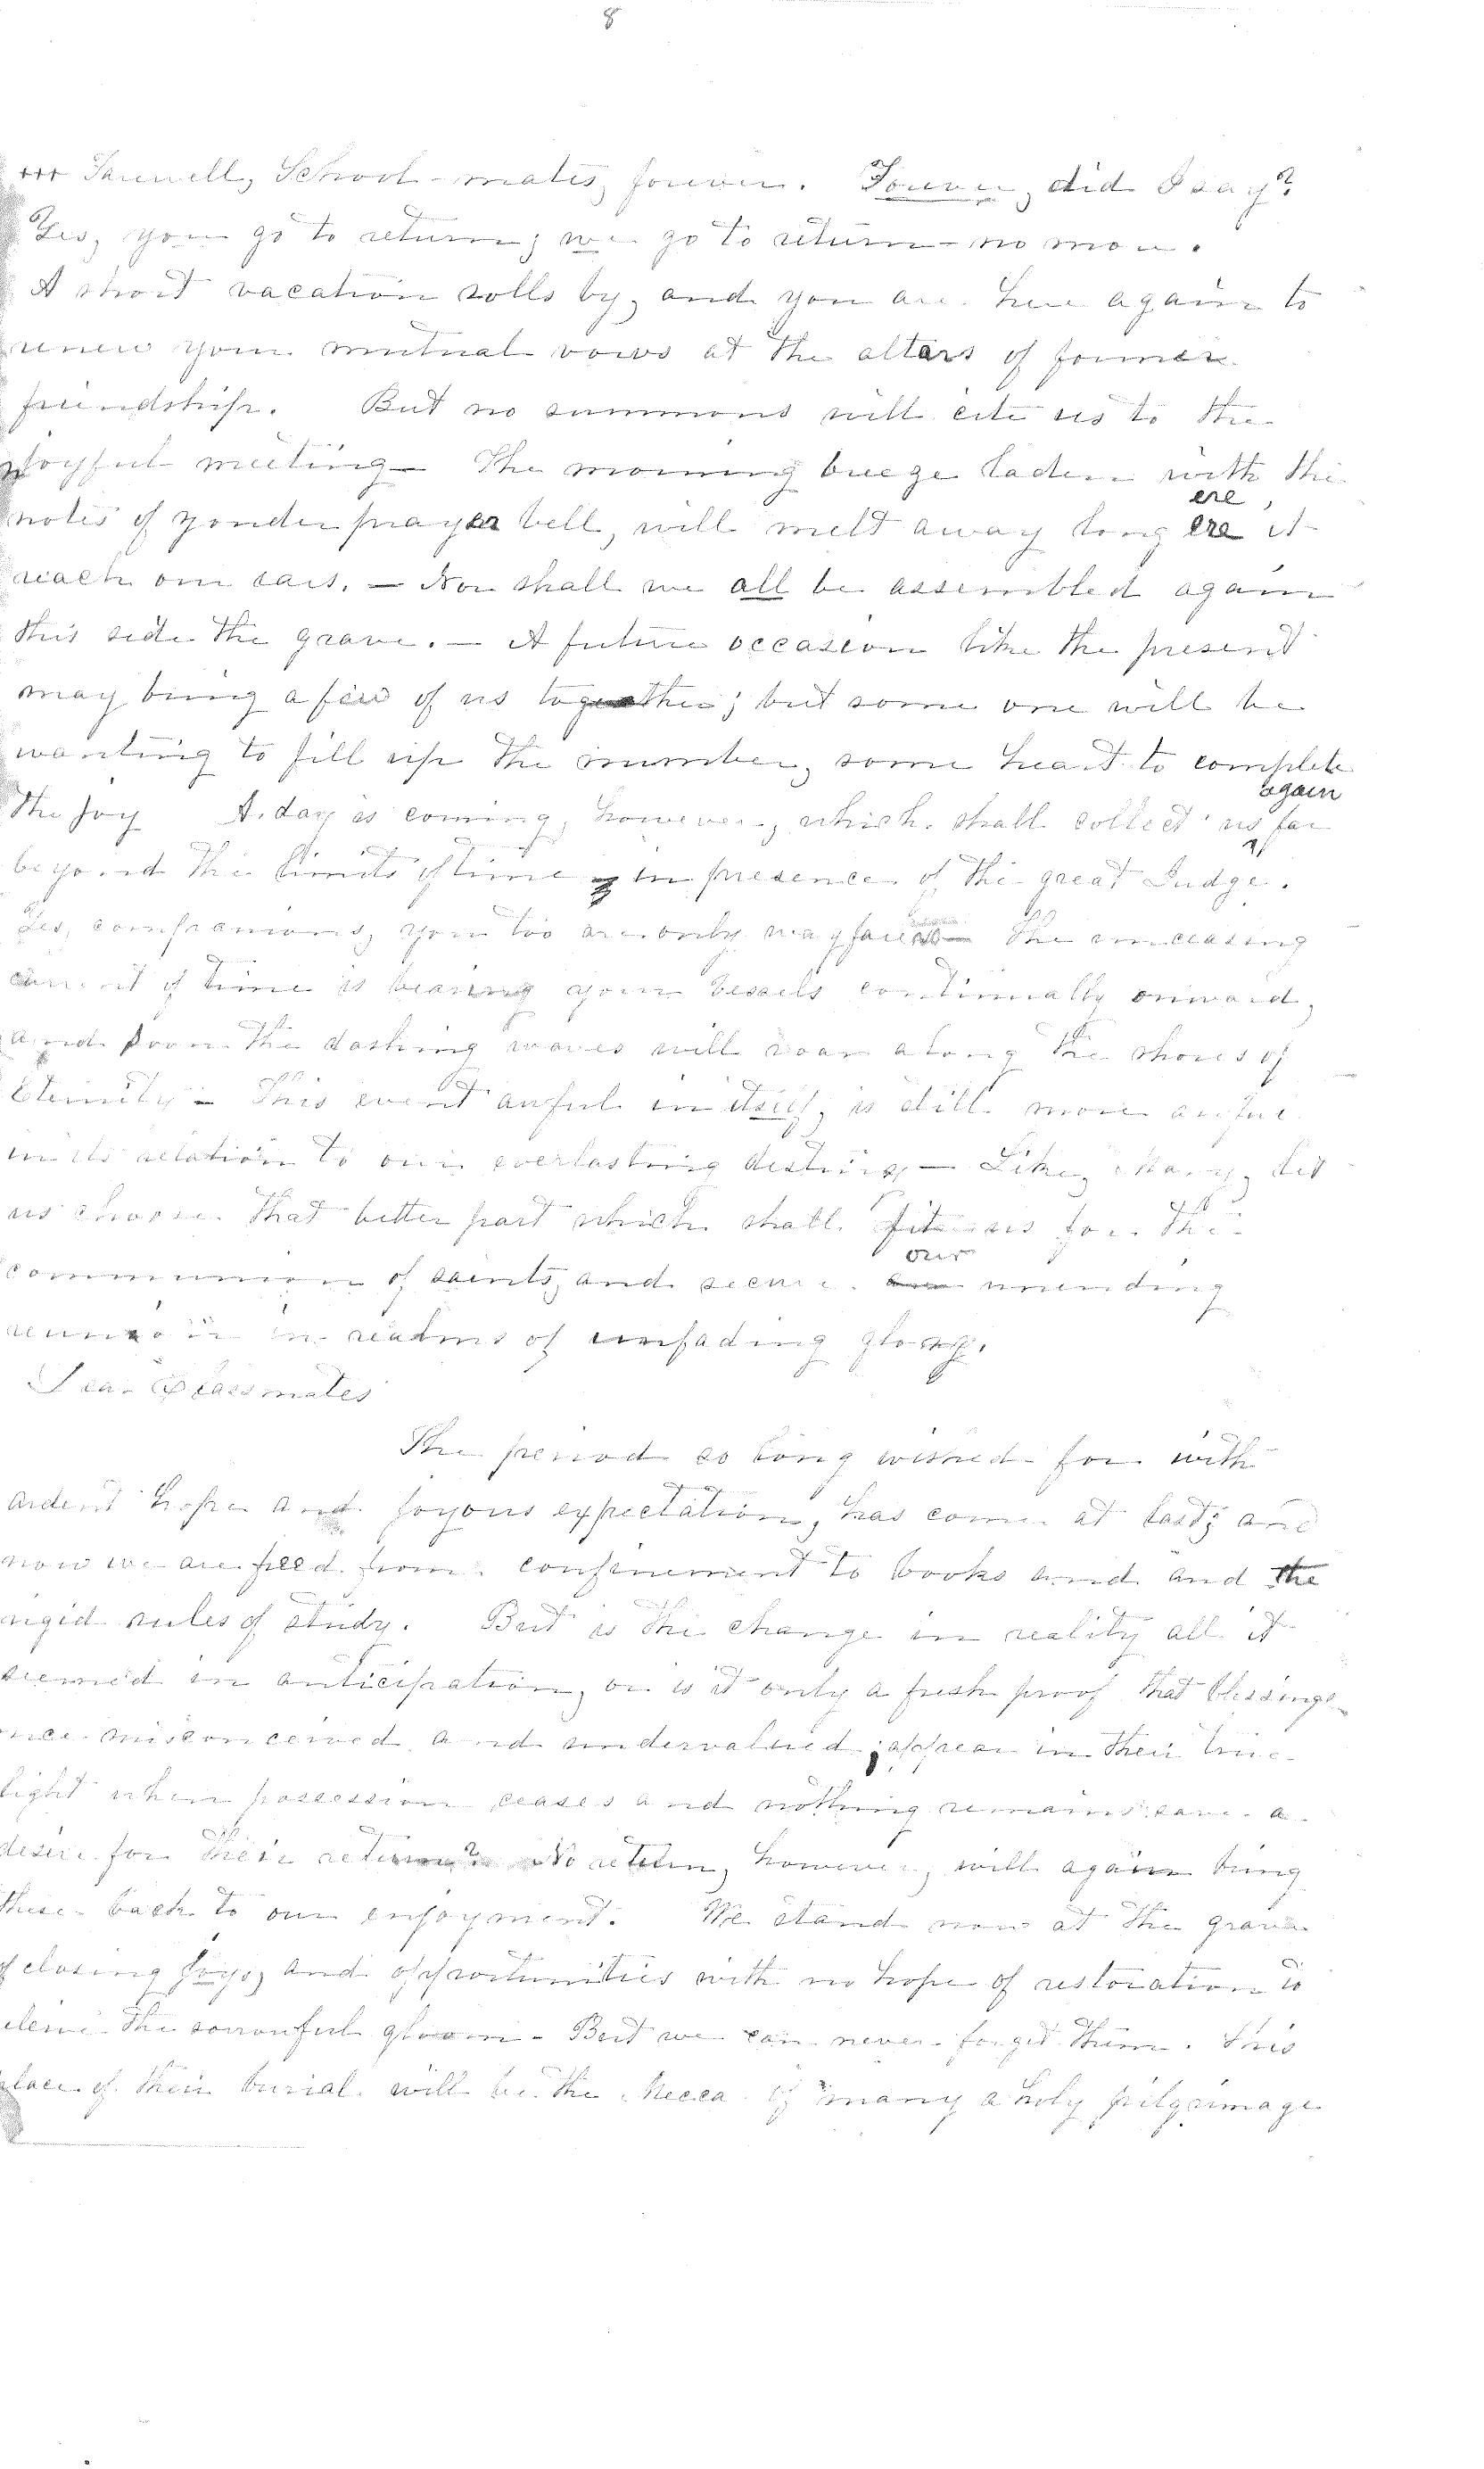 8
+++ Farewell, School-mates, forever. Forever, did I say?
Yes, you go to return; we go to return no more.
A short vacation rolls by, and you are here again to
renew your mutual vows at the altars of former
friendship. But no summons will cite us to the
joyful meeting- The morning breeze laden with the
ere,
notes of yonder prayer bell, will melt away long ere it
reach our ears. - Nor shall we all be assembled again
this side the grave. - A future occasion like the present
may bring a few of us together; but some one will be
wanting to fill up the number, some heart to complete
again
the joy A day is coming, however, which shall collect us far
beyond the limits of time in presence of the great Judge.
Yes, companions, you too are only wayfarers- The unceasing
current of time is bearing your vessels continually onward,
and soon the dashing waves will roar along the shores of
Eternity - This event awful in itself, is still more awful
in its relation to our everlasting destiny - Like, Mary, let
us choose that better part which shall fit us for the
our
communion of saints, and secure unending
reunion in realms of unfading glory.
Dear Classmates
The period so long wished for with
ardent hope and joyous expectation, has come at last; and
now we are freed from confinement to books and and the
rigid rules of study. But is the change in reality all it
seemed in anticipation, or is it only a fresh proof that blessings
once misconceived and undervalued, appear in their true
light when possession ceases and nothing remains save a
desire for their return? No return, however, will again bring
these back to our enjoyment. We stand now at the grave
of closing joys, and opportunities with no hope of restoration to
the sorrowful gloom - But we can never forget them. This
place of their burial will be the Mecca of many a holy pilgrimage